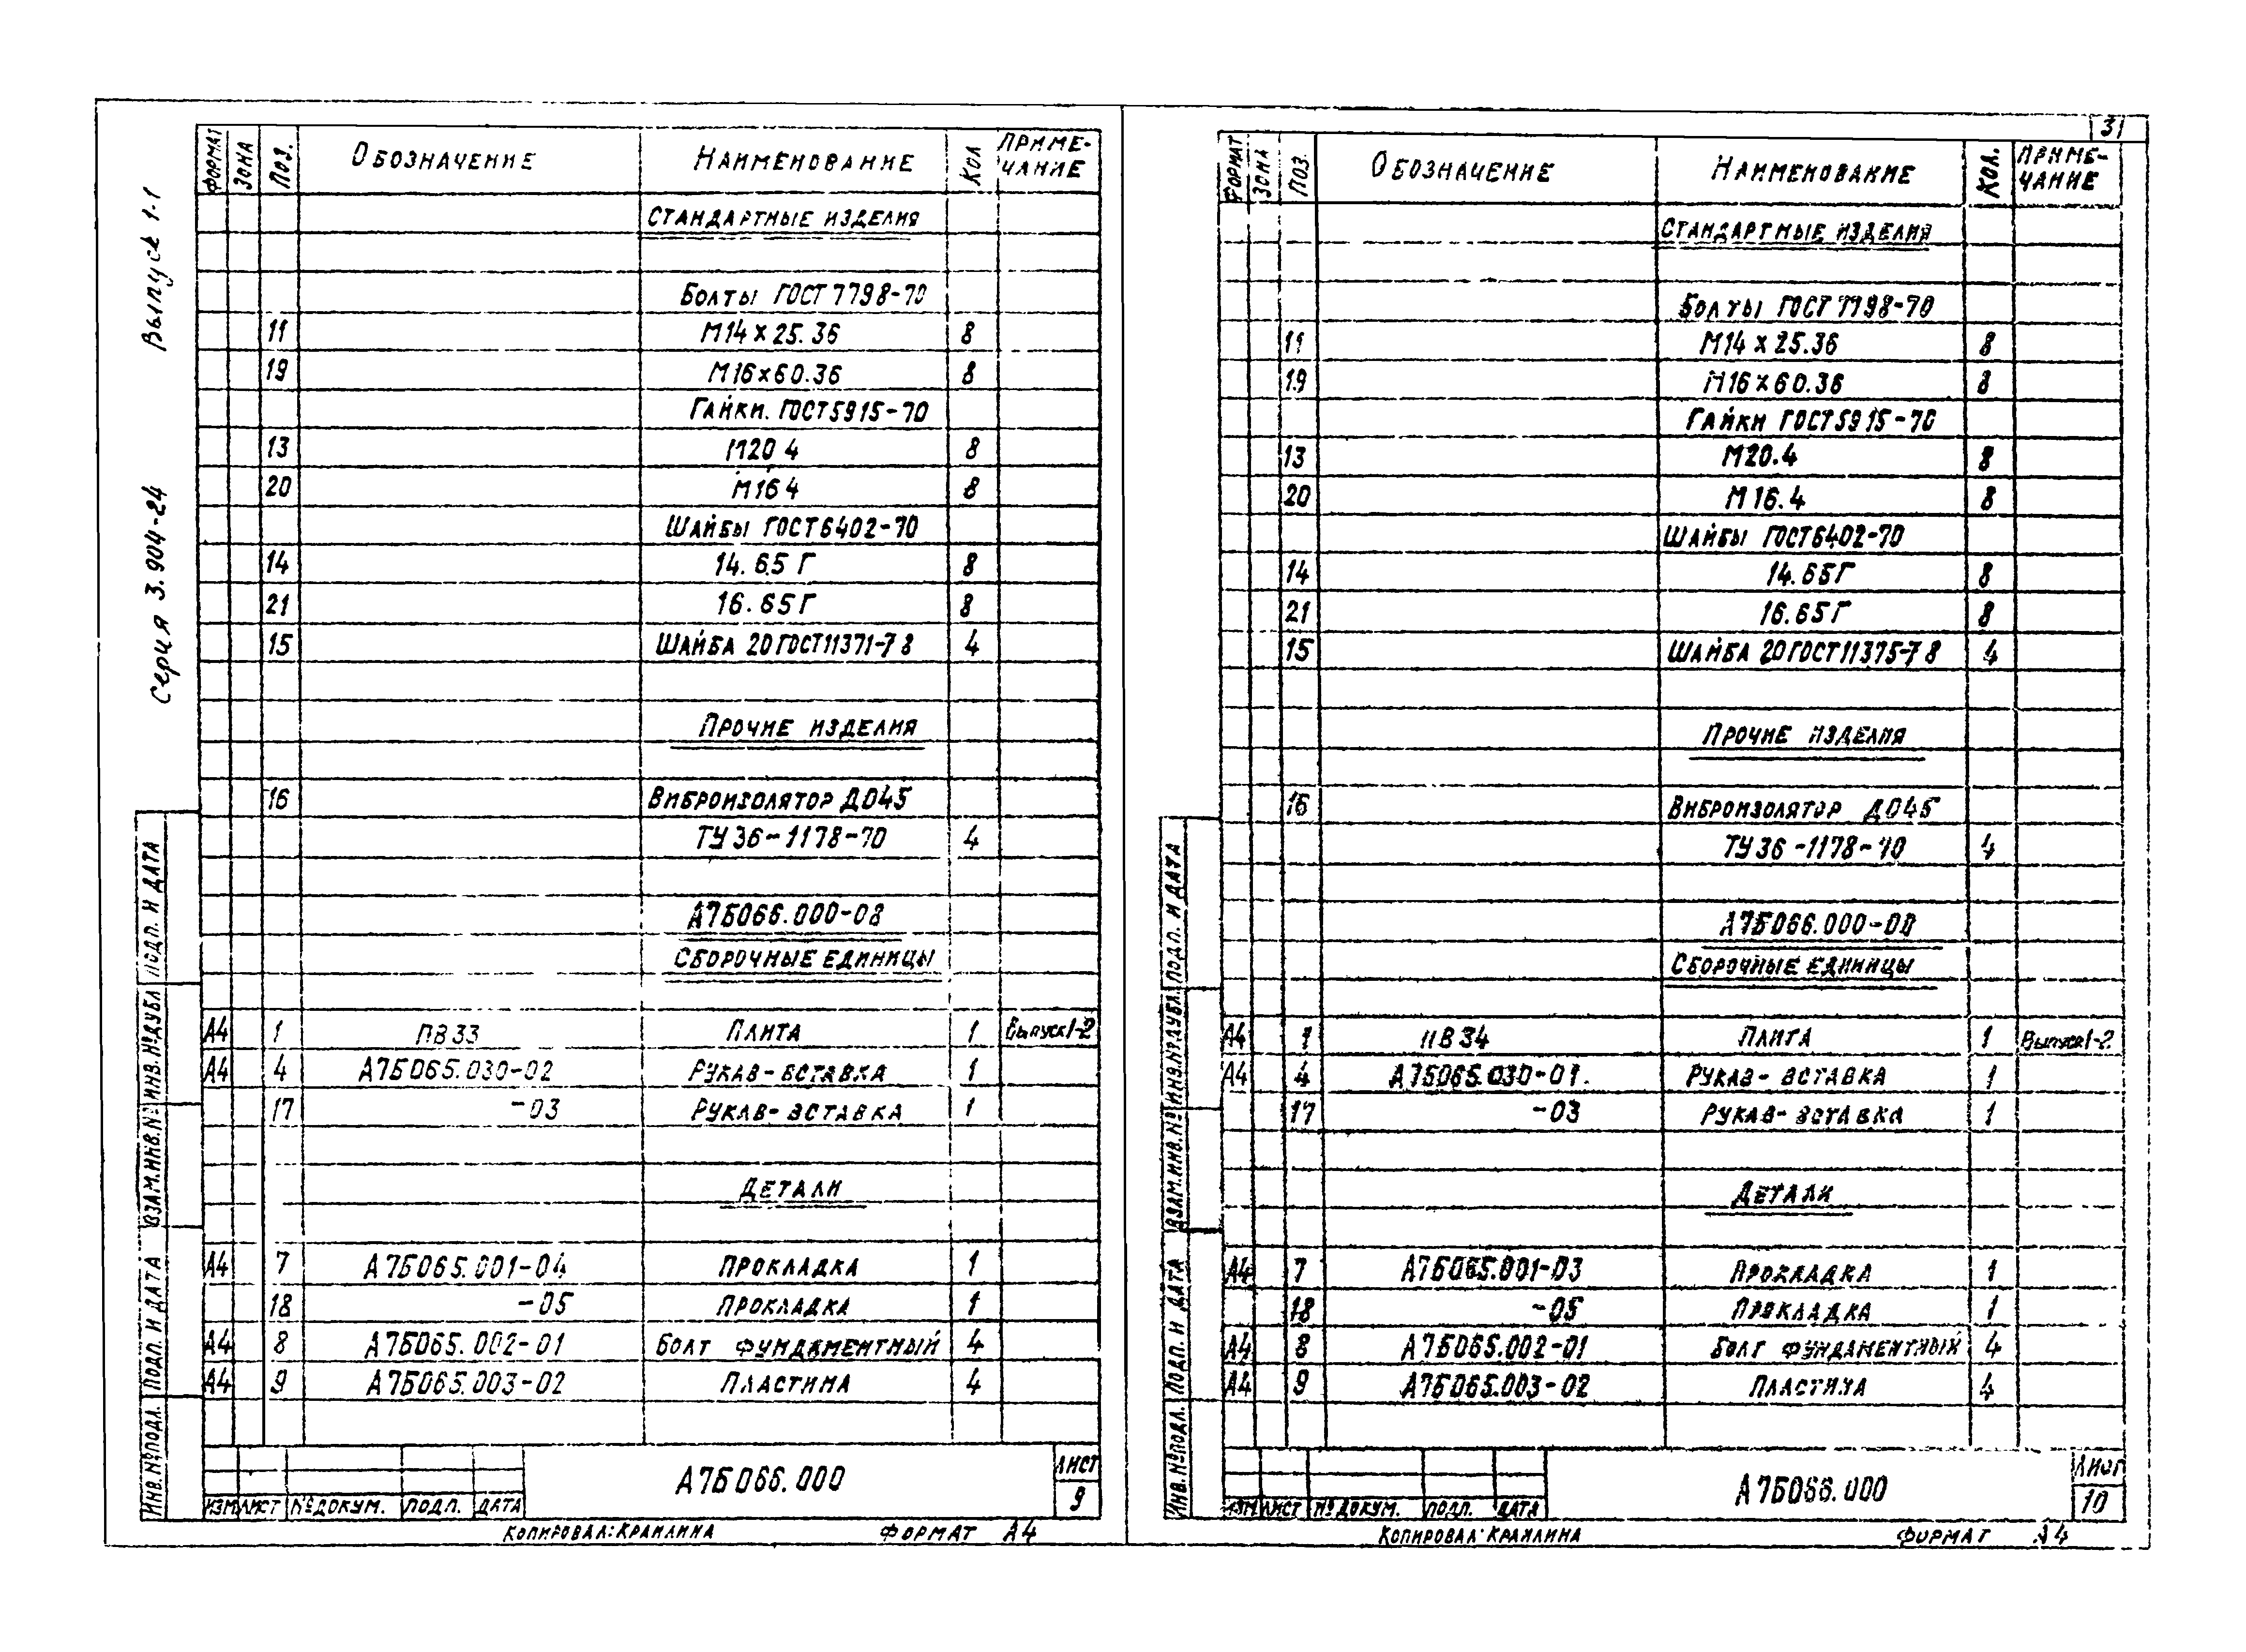 Серия 3.904-24 Выпуск 1-1
ФОРМАТ ЗОНА ПОЗ. ОБОЗНАЧЕНИЕ НАИМЕНОВАНИЕ КОЛ ПРИМЕ-
ЧАНИЕ
СТАНДАРТНЫЕ ИЗДЕЛИЯ
БОЛТЫ ГОСТ 7798-70
11 М14 х 25.36 8
19 М16х60.36 8
ГАЙКИ. ГОСТ5915-70
13 М20 4 8
20 М16 4 8
ШАЙБЫ ГОСТ6402-70
14 14. 65 Г 8
21 16. 65 Г 8
15 ШАЙБА 20 ГОСТ11371-78 4
ПРОЧИЕ ИЗДЕЛИЯ
16 ВИБРОИЗОЛЯТОР ДО45
ТУ 36-1178-70 4
А7Б066.000-08
СБОРОЧНЫЕ ЕДИНИЦЫ
А4 1 ПВ33 ПЛИТА 1 Выпуск1-2
А4 4 А7Б065.030-02 РУКАВ-ВСТАВКА 1
17 -03 РУКАВ-ВСТАВКА 1
ДЕТАЛИ
А4 7 А7Б065.001-04 ПРОКЛАДКА 1
18 -05 ПРОКЛАДКА 1
А4 8 А7Б065.002-01 БОЛТ ФУНДАМЕНТНЫЙ 4
А4 9 А7Б065.003-02 ПЛАСТИНА 4
ИНВ.№ПОДЛ. ПОДП. И ДАТА ВЗАМ.ИНВ.№ ИНВ.№ДУБЛ ПОДП. И ДАТА
ИЗМ ЛИСТ №ДОКУМ. ПОДП. ДАТА
А7Б066.000
ЛИСТ
9
КОПИРОВАЛ: КРАИЛИНА ФОРМАТ А4
31
ФОРМАТ ЗОНА ПОЗ. ОБОЗНАЧЕНИЕ НАИМЕНОВАНИЕ КОЛ. ПРИМЕ-
ЧАНИЕ
СТАНДАРТНЫЕ ИЗДЕЛИЯ
БОЛТЫ ГОСТ 7798-70
11 М14 х 25.36 8
19 М16 х 60.36 8
ГАЙКИ ГОСТ5915-70
13 М20.4 8
20 М16.4 8
ШАЙБЫ ГОСТ6402-70
14 14.65Г 8
21 16.65Г 8
15 ШАЙБА 20 ГОСТ11375-78 4
ПРОЧИЕ ИЗДЕЛИЯ
16 ВИБРОИЗОЛЯТОР ДО45
ТУ 36-1178-70 4
СБОРОЧНЫЕ ЕДИНИЦЫ
А4 1 ПВ34 ПЛИТА 1 Выпуск1-2
А4 4 А7Б065.030-01. РУКАВ-ВСТАВКА 1
17 -03 РУКАВ-ВСТАВКА 1
ДЕТАЛИ
А4 7 А7Б065.001-03 ПРОКЛАДКА 1
18 -05 ПРОКЛАДКА 1
А4 8 А7Б065.002-01 БОЛТ ФУНДАМЕНТНЫЙ 4
А4 9 А7Б065.003-02 ПЛАСТИНА 4
ИНВ.№ПОДЛ. ПОДП. И ДАТА ВЗАМ.ИНВ.№ ИНВ.№ДУБЛ. ПОДП. И ДАТА
ИЗМ ЛИСТ №ДОКУМ. ПОДП. ДАТА
А7Б066.000
ЛИСТ
10
КОПИРОВАЛ: КРАИЛИНА ФОРМАТ А4